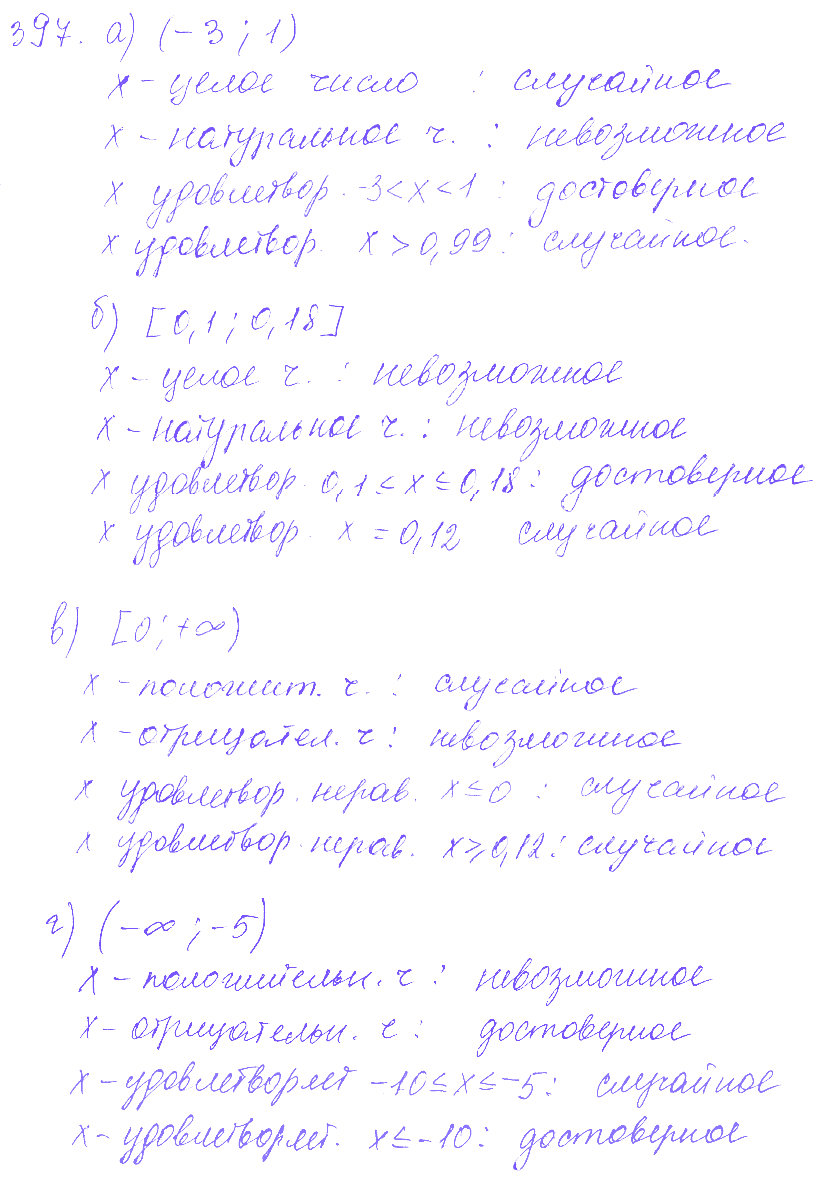 397. а) (-3 ; 1)
х - целое число : случайное
х - натуральное ч. : невозможное
х удовлетвор. -3 < х < 1 : достоверное
х удовлетвор. х > 0,99 : случайное.
б) [0,1 ; 0,18]
х - целое ч. : невозможное
х - натуральное ч. : невозможное
х удовлетвор. 0,1 ≤ х ≤ 0,18 : достоверное
х удовлетвор. х = 0,12 случайное
в) [0 ; +∞)
х - положит. ч. : случайное
х - отрицател. ч : невозможное
х удовлетвор. нерав. х ≤ 0 : случайное
х удовлетвор. нерав. х ≥ 0,12 : случайное
г) (-∞ ; -5)
х - положительн. ч : невозможное
х - отрицательн. ч : достоверное
х - удовлетворяет -10 ≤ х ≤ -5 : случайное
х - удовлетворяет. х ≤ -10 : достоверное